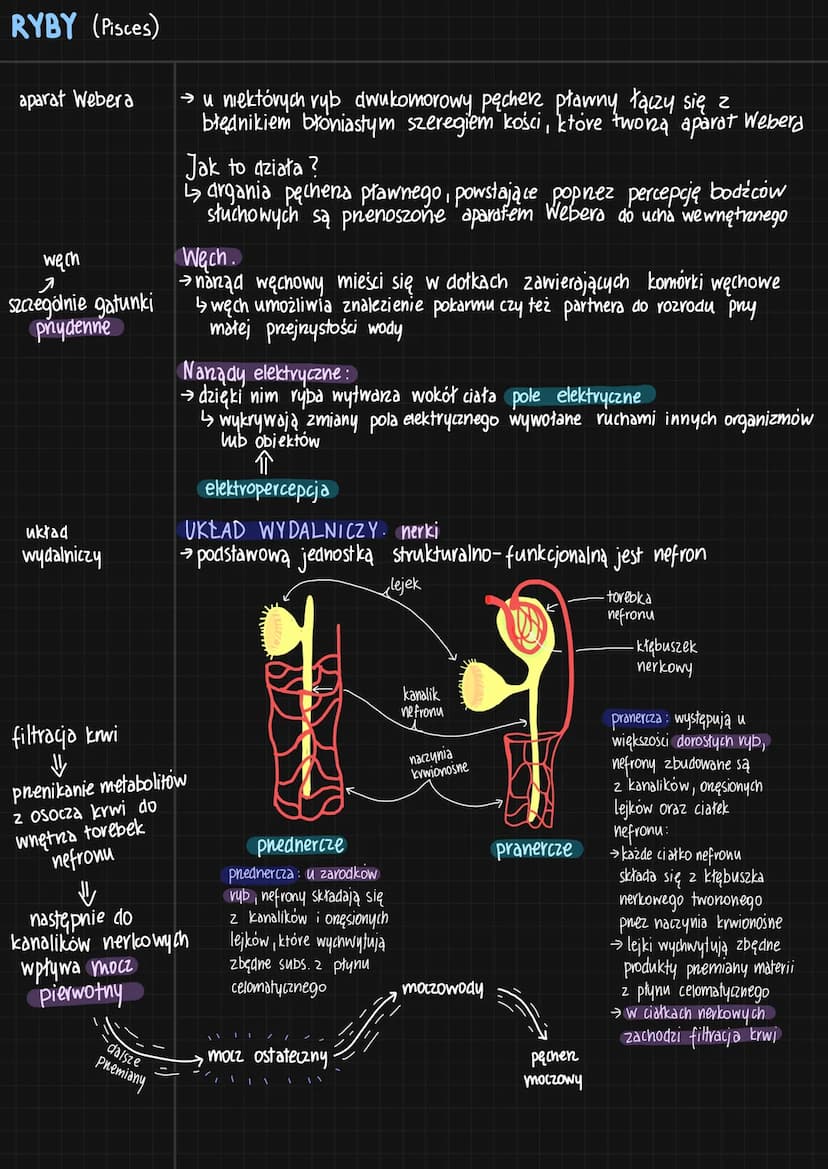 RYBY (Pisces)
aparat Webera
→ u niektórych ryb dwukomorowy pęcherz pławny łączy się z
błędnikiem błoniastym szeregiem kości, które tworzą aparat Webera
Jak to działa?
↳ drgania pęcherza pławnego, powstające poprzez percepcję bodźców
słuchowych są przenoszone aparatem Webera do ucha wewnętrznego
węch
↗
szczególnie gatunki
przydenne
Węch.
→ narząd węchowy mieści się w dołkach zawierających komórki węchowe
↳ węch umożliwia znalezienie pokarmu czy też partnera do rozrodu przy
małej przejrzystości wody
Narządy elektryczne:
→ dzięki nim ryba wytwarza wokół ciała pole elektryczne
↳ wykrywają zmiany pola elektrycznego wywołane ruchami innych organizmów
lub obiektów
⇑
elektropercepcja
układ
wydalniczy
UKŁAD WYDALNICZY. nerki
→ podstawową jednostką strukturalno-funkcjonalną jest nefron
lejek
torebka
nefronu
kłębuszek
nerkowy
kanalik
nefronu
naczynia
krwionośne
przednercze
pranercze
filtracja krwi
⇓
przenikanie metabolitów
z osocza krwi do
wnętrza torebek
nefronu
⇓
następnie do
kanalików nerkowych
wpływa mocz
pierwotny
przednercza: u zarodków
ryb, nefrony składają się
z kanalików i orzęsionych
lejków, które wychwytują
zbędne subs. z płynu
celomatycznego
pranercza: występują u
większości dorosłych ryb,
nefrony zbudowane są
z kanalików, orzęsionych
lejków oraz ciałek
nefronu:
→ każde ciałko nefronu
składa się z kłębuszka
nerkowego tworzonego
przez naczynia krwionośne
→ lejki wychwytują zbędne
produkty przemiany materii
z płynu celomatycznego
→ w ciałkach nerkowych
zachodzi filtracja krwi
dalsze
przemiany
mocz ostateczny
moczowody
pęcherz
moczowy